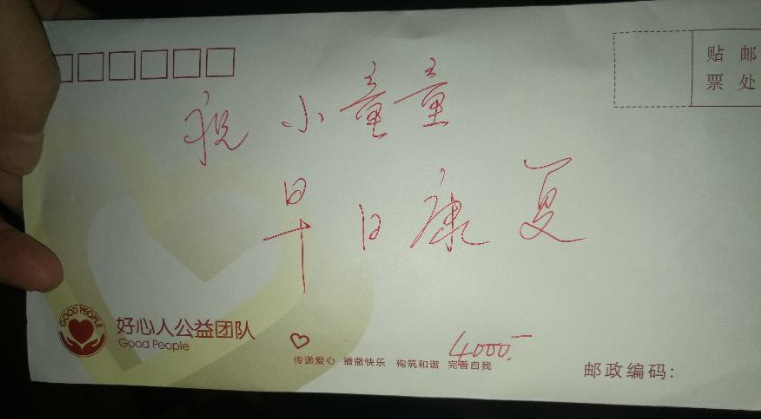 贴 邮
票 处
祝 小童童
早日康复
GOOD PEOPLE
好心人公益团队
Good People
4000.-
传递爱心 播撒快乐 构筑和谐 完善自我
邮政编码: